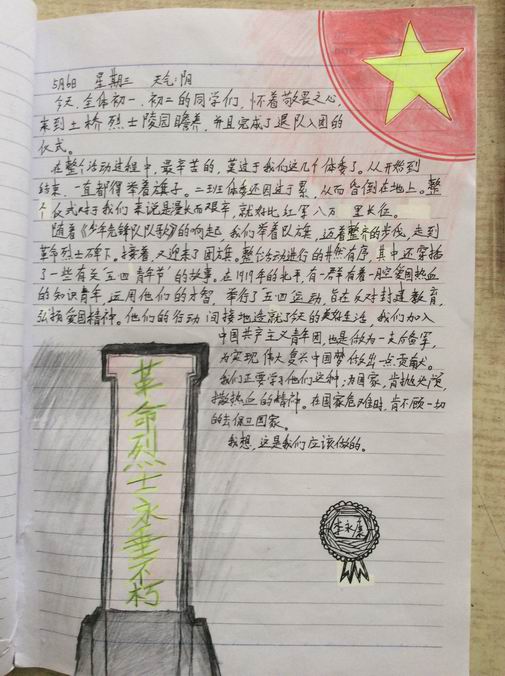 5月6日 星期三 天气:阴
今天,全体初一、初二的同学们,怀着敬畏之心,
来到土桥烈士陵园瞻养,并且完成了退队入团的
仪式。
在整个活动过程中,最辛苦的,莫过于我们这几个体委了。从开始到
结束,一直都得举着旗子。二班体委还因过于累,从而昏倒在地上。整
个仪式对于我们来说是漫长而艰辛,就好比红军八万里长征。
随着《少年先锋队队歌》的响起,我们举着队旗,迈着整齐的步伐,走到
革命烈士碑下。接着,又迎来了团旗。整个活动进行的井然有序,其中还穿插
了一些有关“五四青年节”的故事。在1919年的北平,有一群有着一腔爱国热血
的知识青年,运用他们的才智,举行了五四运动,旨在反对封建教育,
弘扬爱国精神。他们的行动间接地造就了今天的美好生活,我们加入
中国共产主义青年团,也是做为一支后备军,
为实现伟大复兴中国梦做出一点贡献。
我们正要学习他们这种;为国家,肯抛头颅
撒热血的精神。在国家危难时,肯不顾一切
的去保卫国家。
我想,这是我们应该做的。
革命烈士永垂不朽